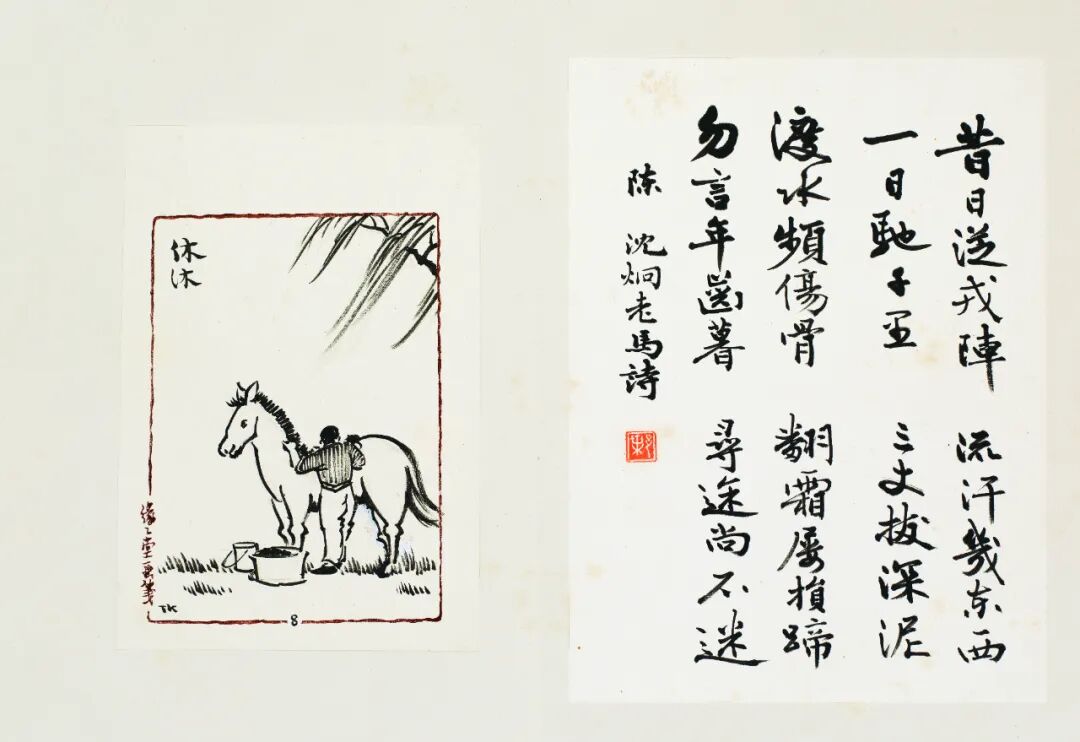 休沐
緣々堂畫箋
TK
8
昔日從戎陣 流汗幾东西
一日馳千里 三丈拔深泥
渡水頻傷骨 翻霜屢損蹄
勿言年齒暮 尋途尚不迷
陳 沈炯老馬詩